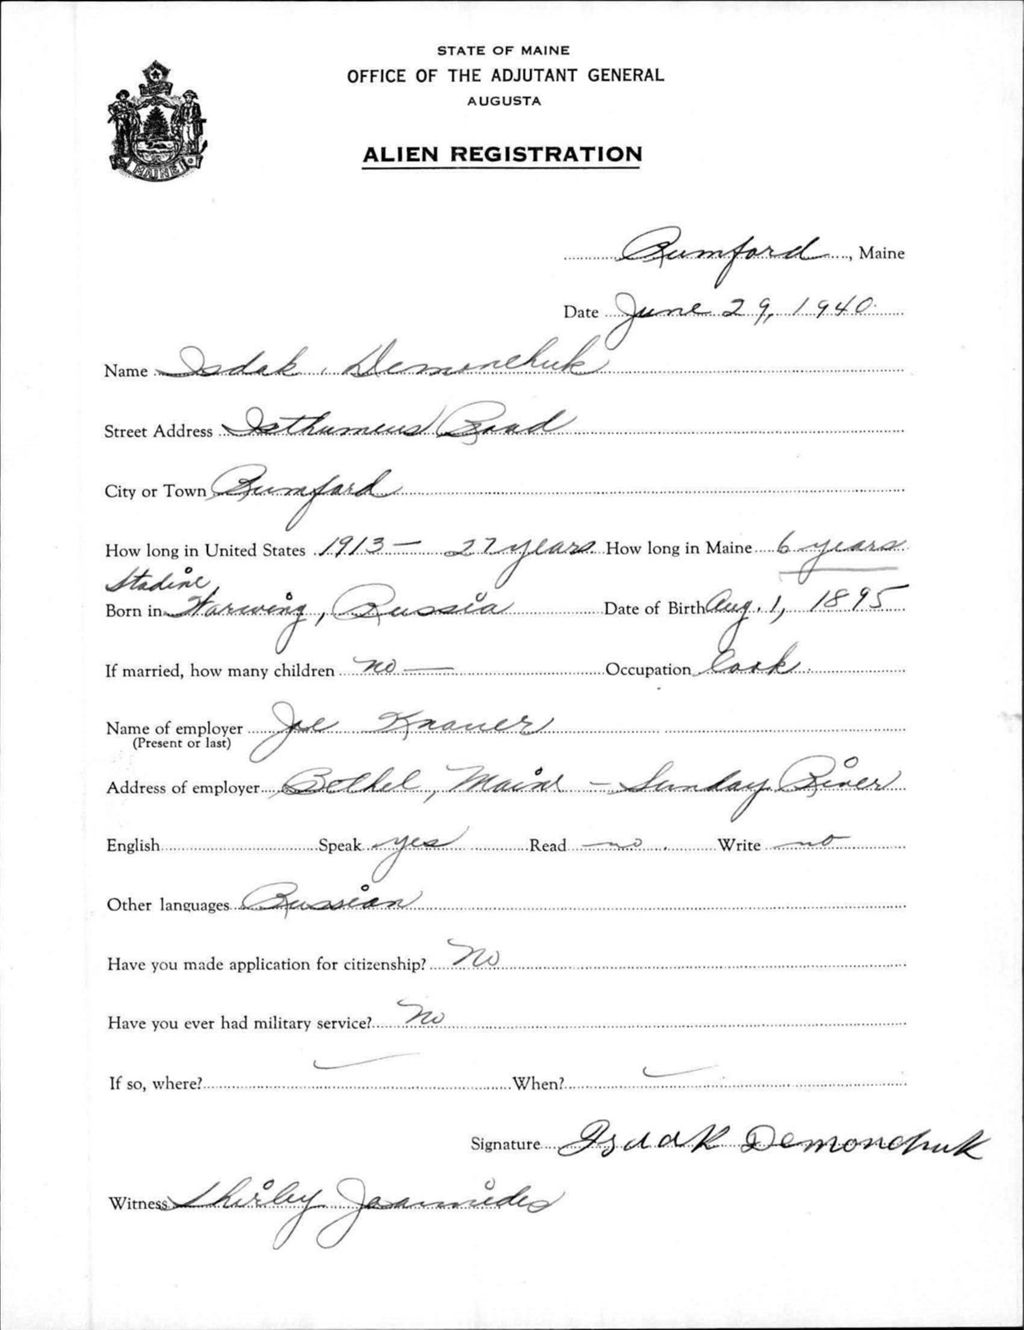 STATE OF MAINE
OFFICE OF THE ADJUTANT GENERAL
AUGUSTA
ALIEN REGISTRATION
MAINE
Rumford, Maine
Date June 29, 1940
Name Isdak Demonchuk
Street Address Isthumeus Road
City or Town Rumford
How long in United States 1913 - 27 years How long in Maine 6 years
Born in Russia Date of Birth Aug. 1, 1895
If married, how many children no — Occupation Cook
Name of employer Joe Knauer
(Present or last)
Address of employer Bethel, Maine - Sunday River
English Speak yes Read no Write no
Other languages Russian
Have you made application for citizenship? No
Have you ever had military service? No
If so, where? — When? —
Signature Isaak Demonchuk
Witness Shirley Joannides